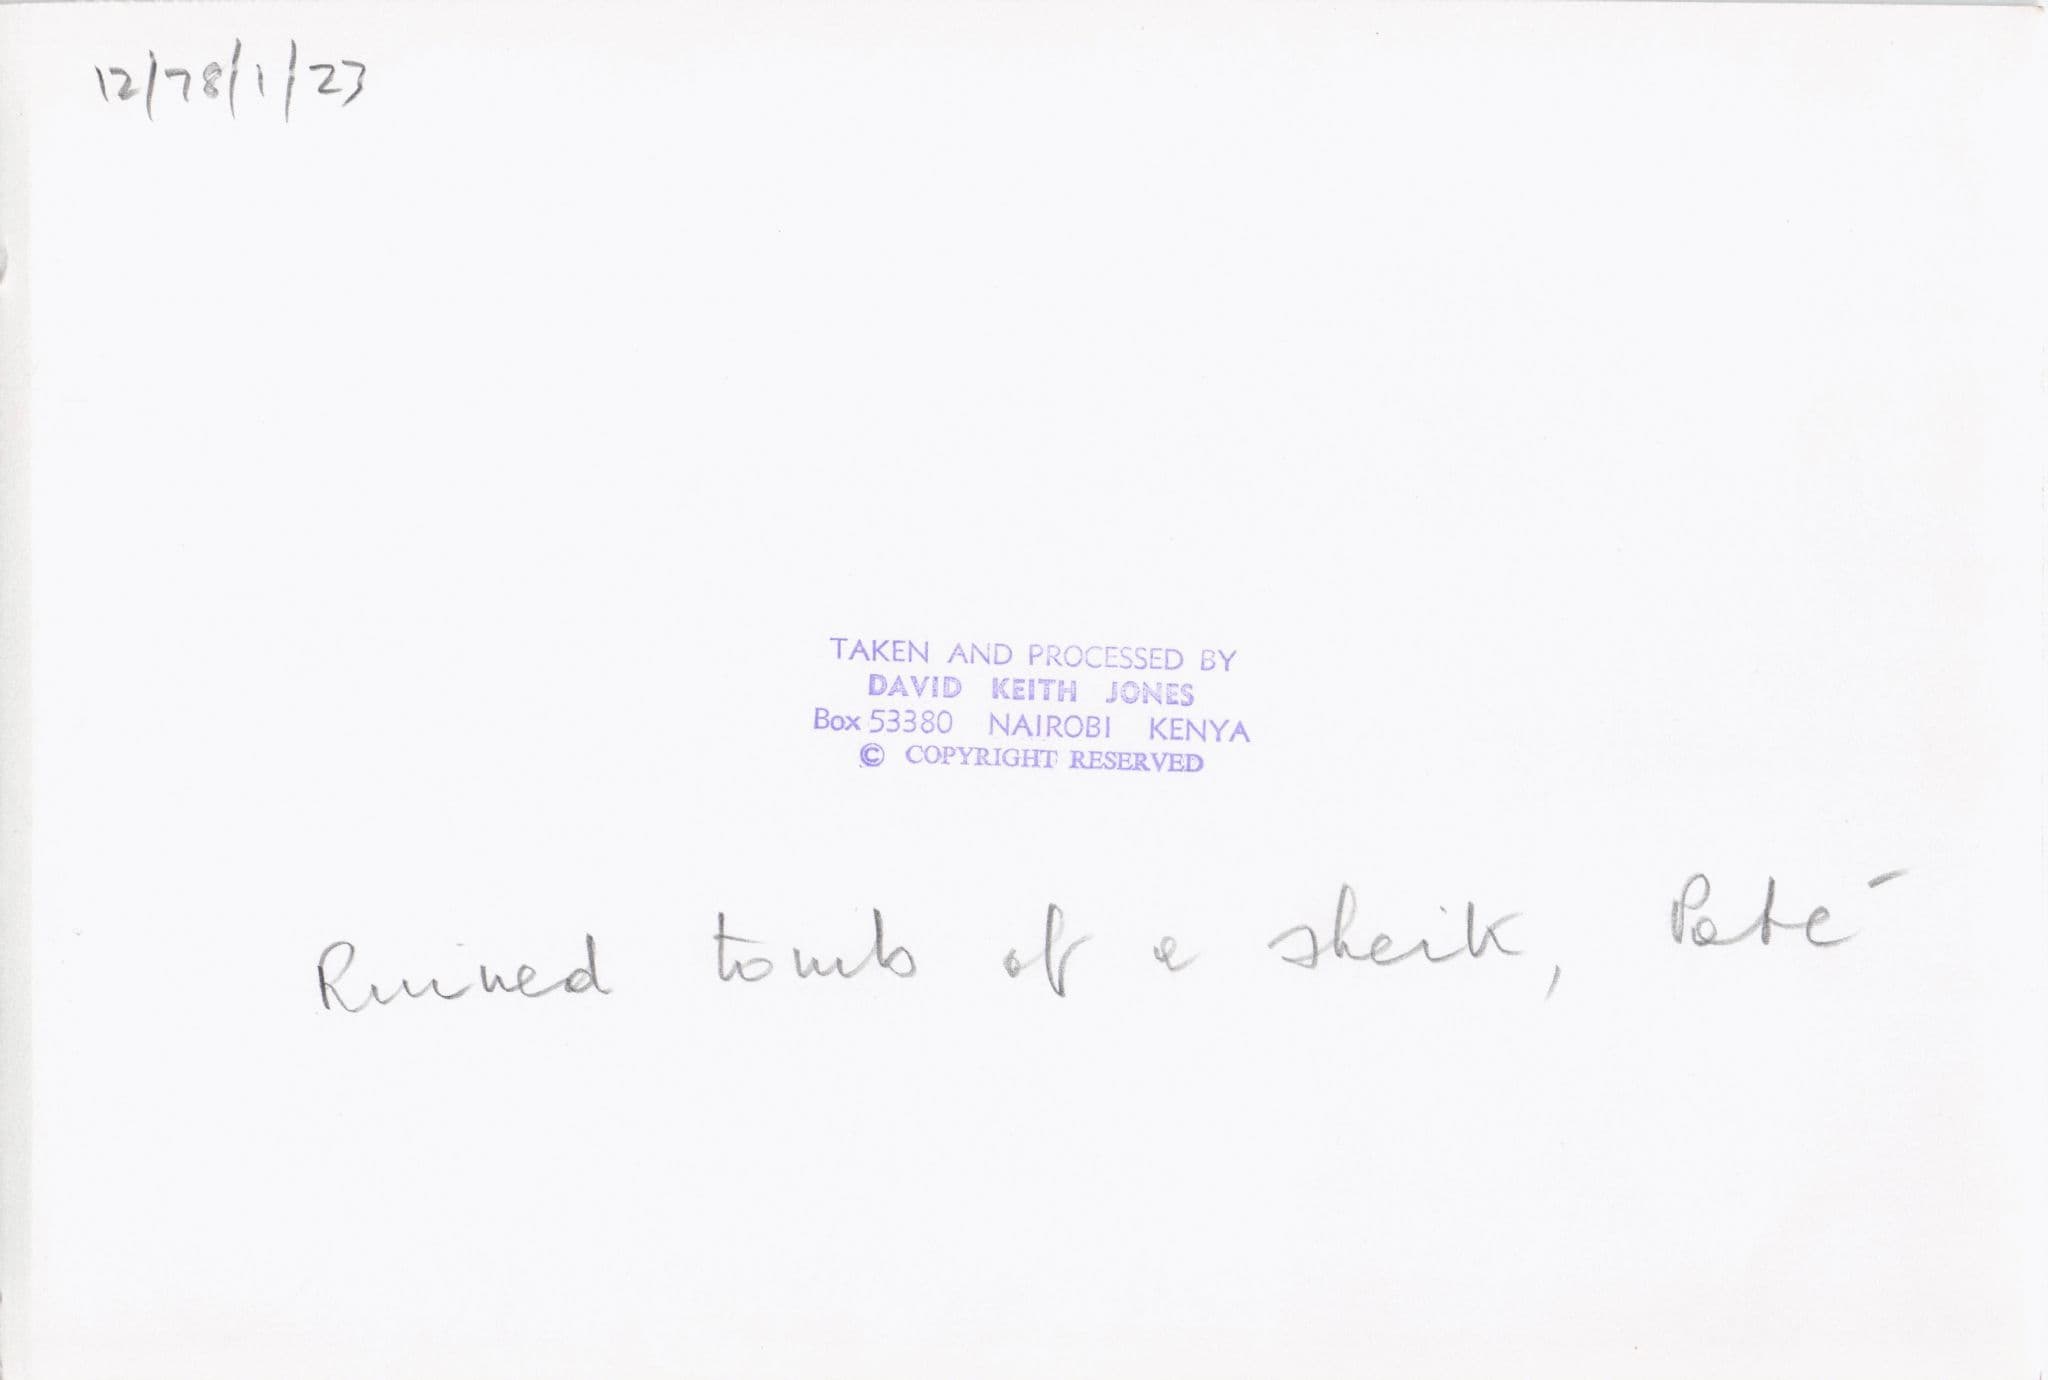 12/78/1/23
TAKEN AND PROCESSED BY
DAVID KEITH JONES
Box 53380 NAIROBI KENYA
© COPYRIGHT RESERVED
Ruined tomb of a sheik, Paté